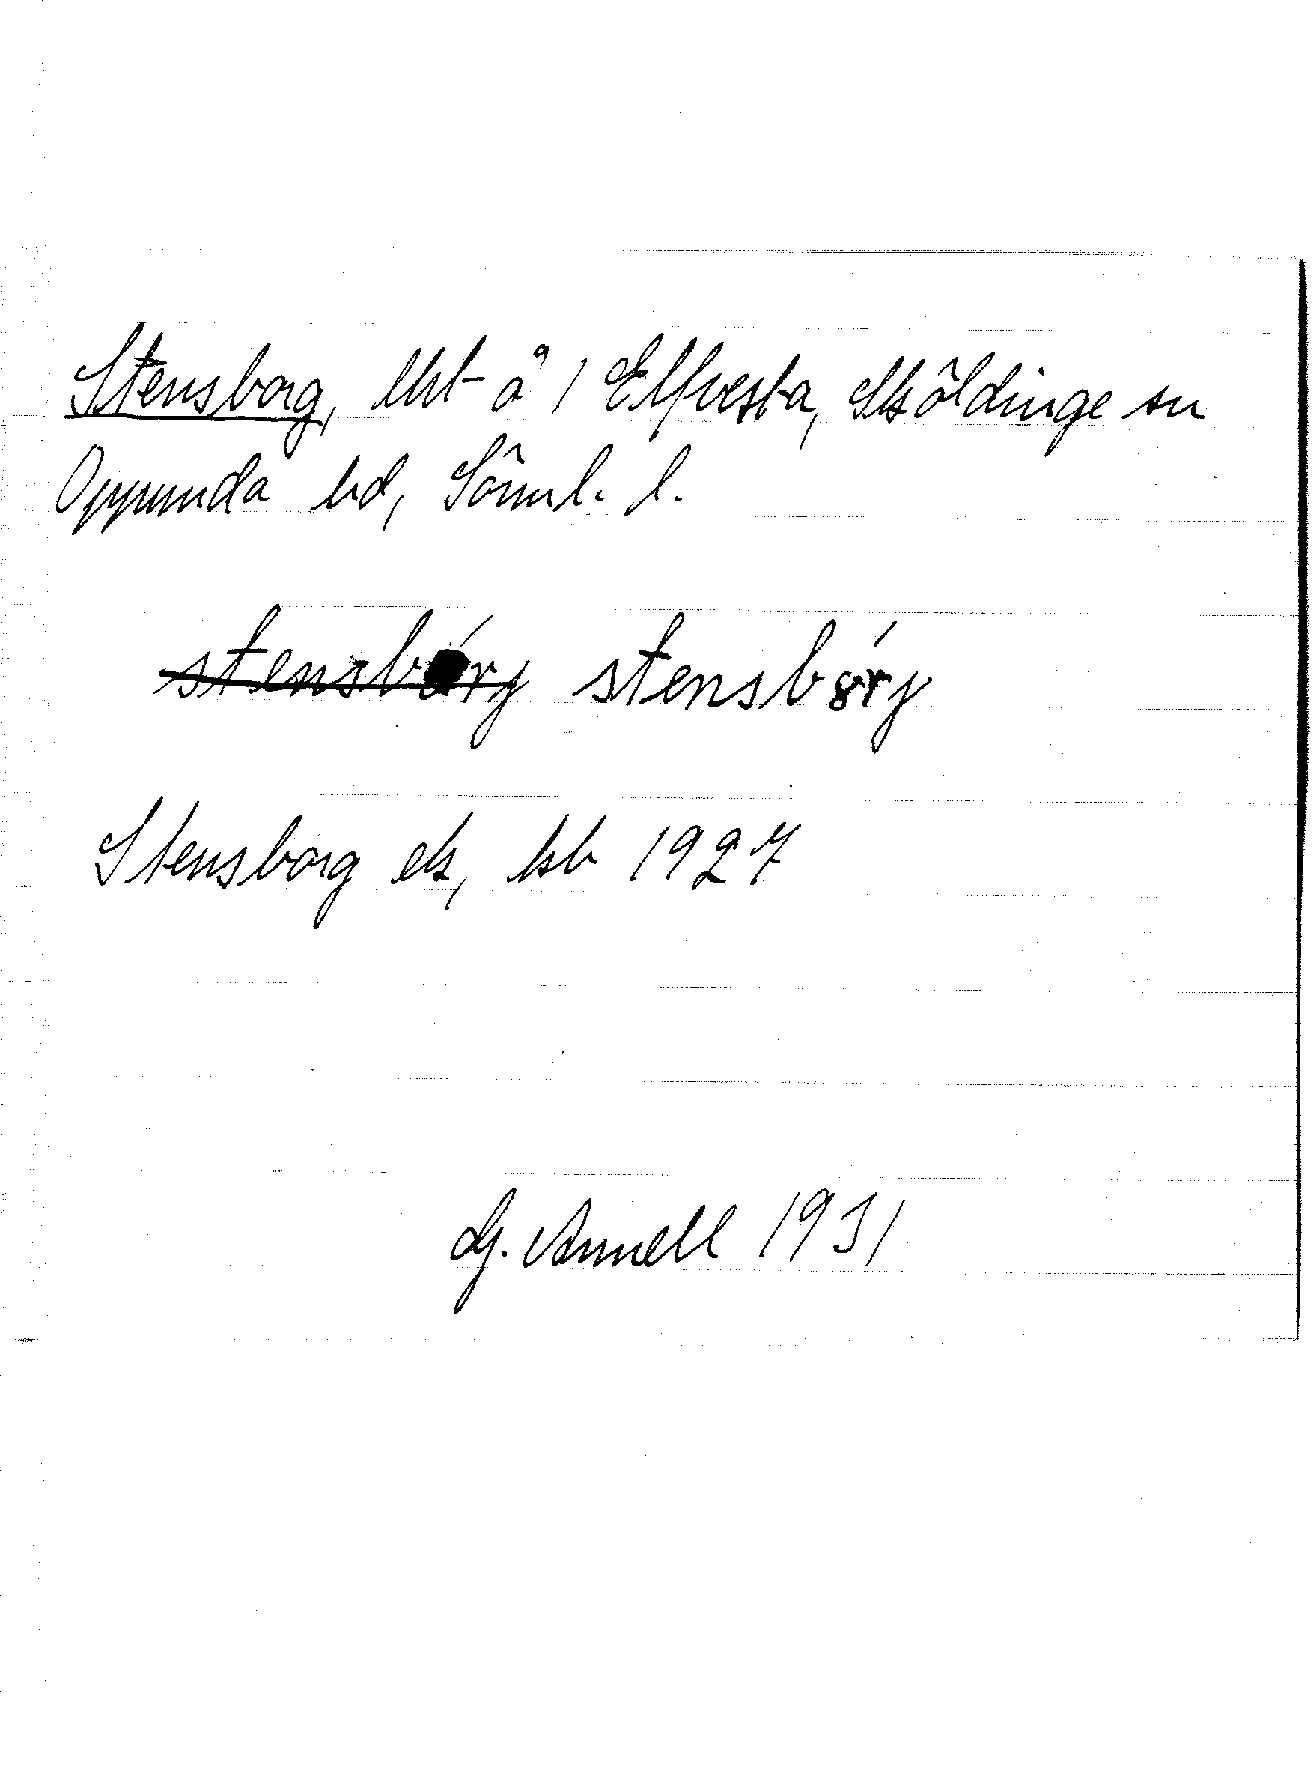 Stensborg, lht å 1 Elfvesta, Sköldinge sn
Oppunda hd, Söml. l.
stensbórj stensbórj
Stensborg ek, kb 1927
G. Annell 1931